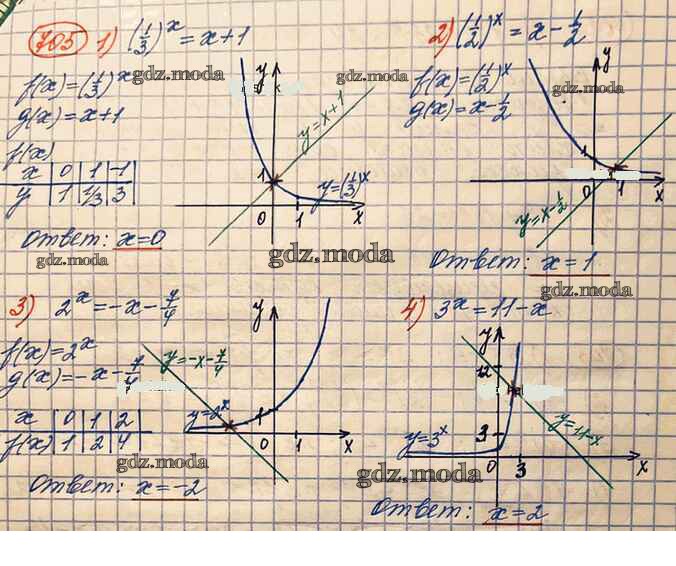 705 1) (1/3)^x = x+1
f(x)=(1/3)^x
g(x)=x+1
f(x)
x | 0 | 1 | -1
y | 1 | 1/3 | 3
Ответ: x=0
gdz.moda
gdz.moda
y
y=x+1
1
y=(1/3)^x
0 1 x
gdz.moda
2) (1/2)^x = x - 1/2
f(x)=(1/2)^x
g(x)=x-1/2
gdz.moda
gdz.moda
y
1
0 1 x
y=x-1/2
Ответ: x=1
gdz.moda
3) 2^x = -x - 7/4
f(x)=2^x
g(x)=-x-7/4
x | 0 | 1 | 2
f(x) | 1 | 2 | 4
gdz.moda
Ответ: x=-2
y
y=-x-7/4
y=2^x
1
0 1 x
4) 3^x = 11-x
y
12
y=11-x
y=3^x
3
0 3 x
gdz.moda
Ответ: x=2